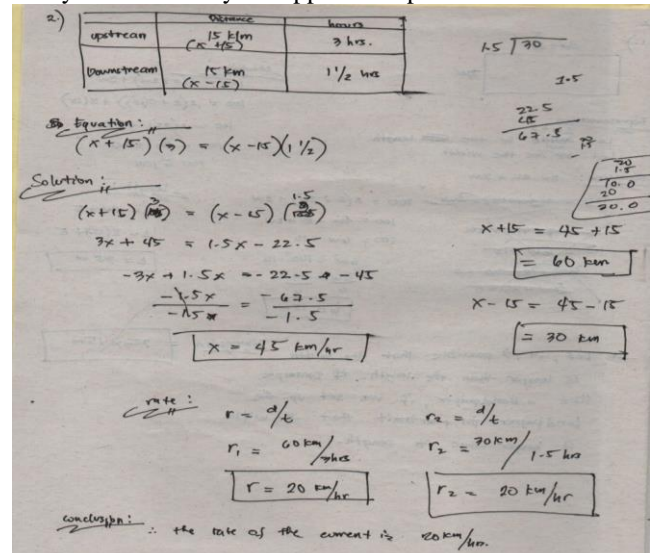 2.)
Distance hours
upstream 15 klm (x +15) 3 hrs.
Downstream 15 km (x - 15) 1 1/2 hrs
1.5 √30
1.5
22.5
45
67.5
Equation:
(x + 15) (3) = (x - 15)(1 1/2)
Solution:
(x+15) (3) = (x - 15) (1.5)
3x + 45 = 1.5x - 22.5
-3x + 1.5x = -22.5 - 45
-1.5x = -67.5
-1.5 -1.5
x = 45 km/hr
20
10.0
20
30.0
x +15 = 45 +15
= 60 km
x - 15 = 45 - 15
= 30 km
rate:
r = d/t r2 = d/t
r1 = 60km/3hrs r2 = 30km/1.5 hrs
r = 20 km/hr r2 = 20 km/hr
conclusion: ∴ the rate of the current is 20km/hr.